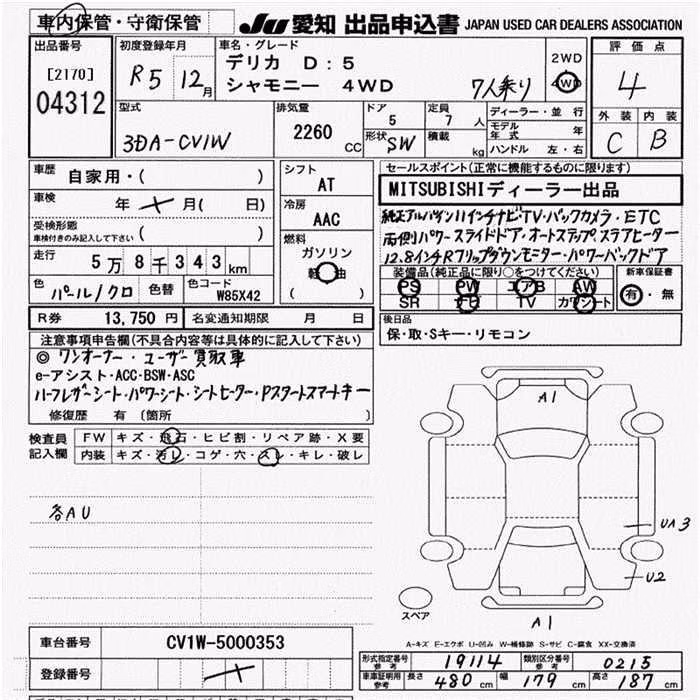 車内保管・守衛保管
JU 愛知 出品申込書 JAPAN USED CAR DEALERS ASSOCIATION
出品番号
[2170]
04312
初度登録年月
R5 12月
車名・グレード
デリカ D:5
シャモニー 4WD 7人乗り
2WD
4WD
評価点
4
外装 内装
C B
型式
3DA-CV1W
排気量
2260 CC
ドア
5
定員
7 人
形状 SW
積載 kg
ディーラー・並行
モデル年式 年
ハンドル 左・右
車歴 自家用・( )
車検 年 月( 日)
受検形態
車検付きのみ記入して下さい ( )
走行 5万8千343km
色 パール/クロ 色替 色コード W85X42
シフト
AT
冷房
AAC
燃料
ガソリン
軽油
( )
セールスポイント(正常に機能するものに限ります)
MITSUBISHIディーラー出品
純正アルパイン11インチナビ・TV・バックカメラ・ETC
両側パワースライドドア・オートステップ・ステアヒーター
12.8インチRフリップダウンモニター・パワーバックドア
装備品(純正品に限り○をつけてください)
PS PW エアB AW
SR ナビ TV カワシート
新車保証書
有・無
R券 13,750 円 名変通知期限 月 日
後日品
保・取・Sキー・リモコン
注意事項申告欄(不具合内容等は具体的に記入して下さい)
◎ ワンオーナー・ユーザー買取車
e-アシスト・ACC・BSW・ASC
ハーフレザーシート・パワーシート・シートヒーター・Pスタートスマートキー
修復歴 有 [箇所 ]
検査員記入欄
FW キズ・飛石・ヒビ割・リペア跡・X要
内装 キズ・汚レ・コゲ・穴・スレ・キレ・破レ
各AU
A1
UA3
U2
スペア
A1
A-キズ E-エクボ U-凹み W-補修跡 S-サビ C-腐食 XX-交換済
車台番号 CV1W-5000353
登録番号
形式指定番号 参考 19114 類別区分番号 参考 0215
車庫証明用 参考 長さ 480 cm 幅 179 cm 高さ 187 cm